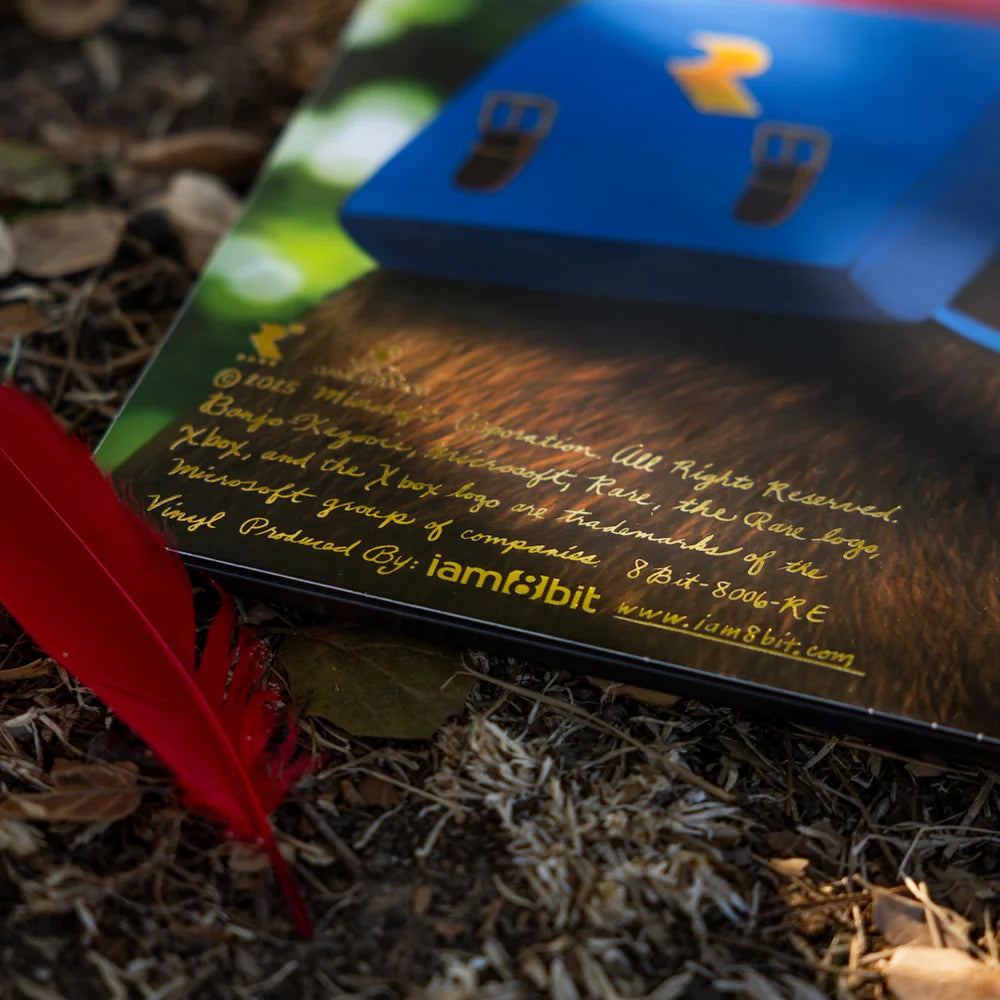 © 2025 Microsoft Corporation. All Rights Reserved.
Banjo-Kazooie, Microsoft, Rare, the Rare logo,
Xbox, and the Xbox logo are trademarks of the
Microsoft group of companies. 8Bit-8006-RE
Vinyl Produced By: iam8bit www.iam8bit.com